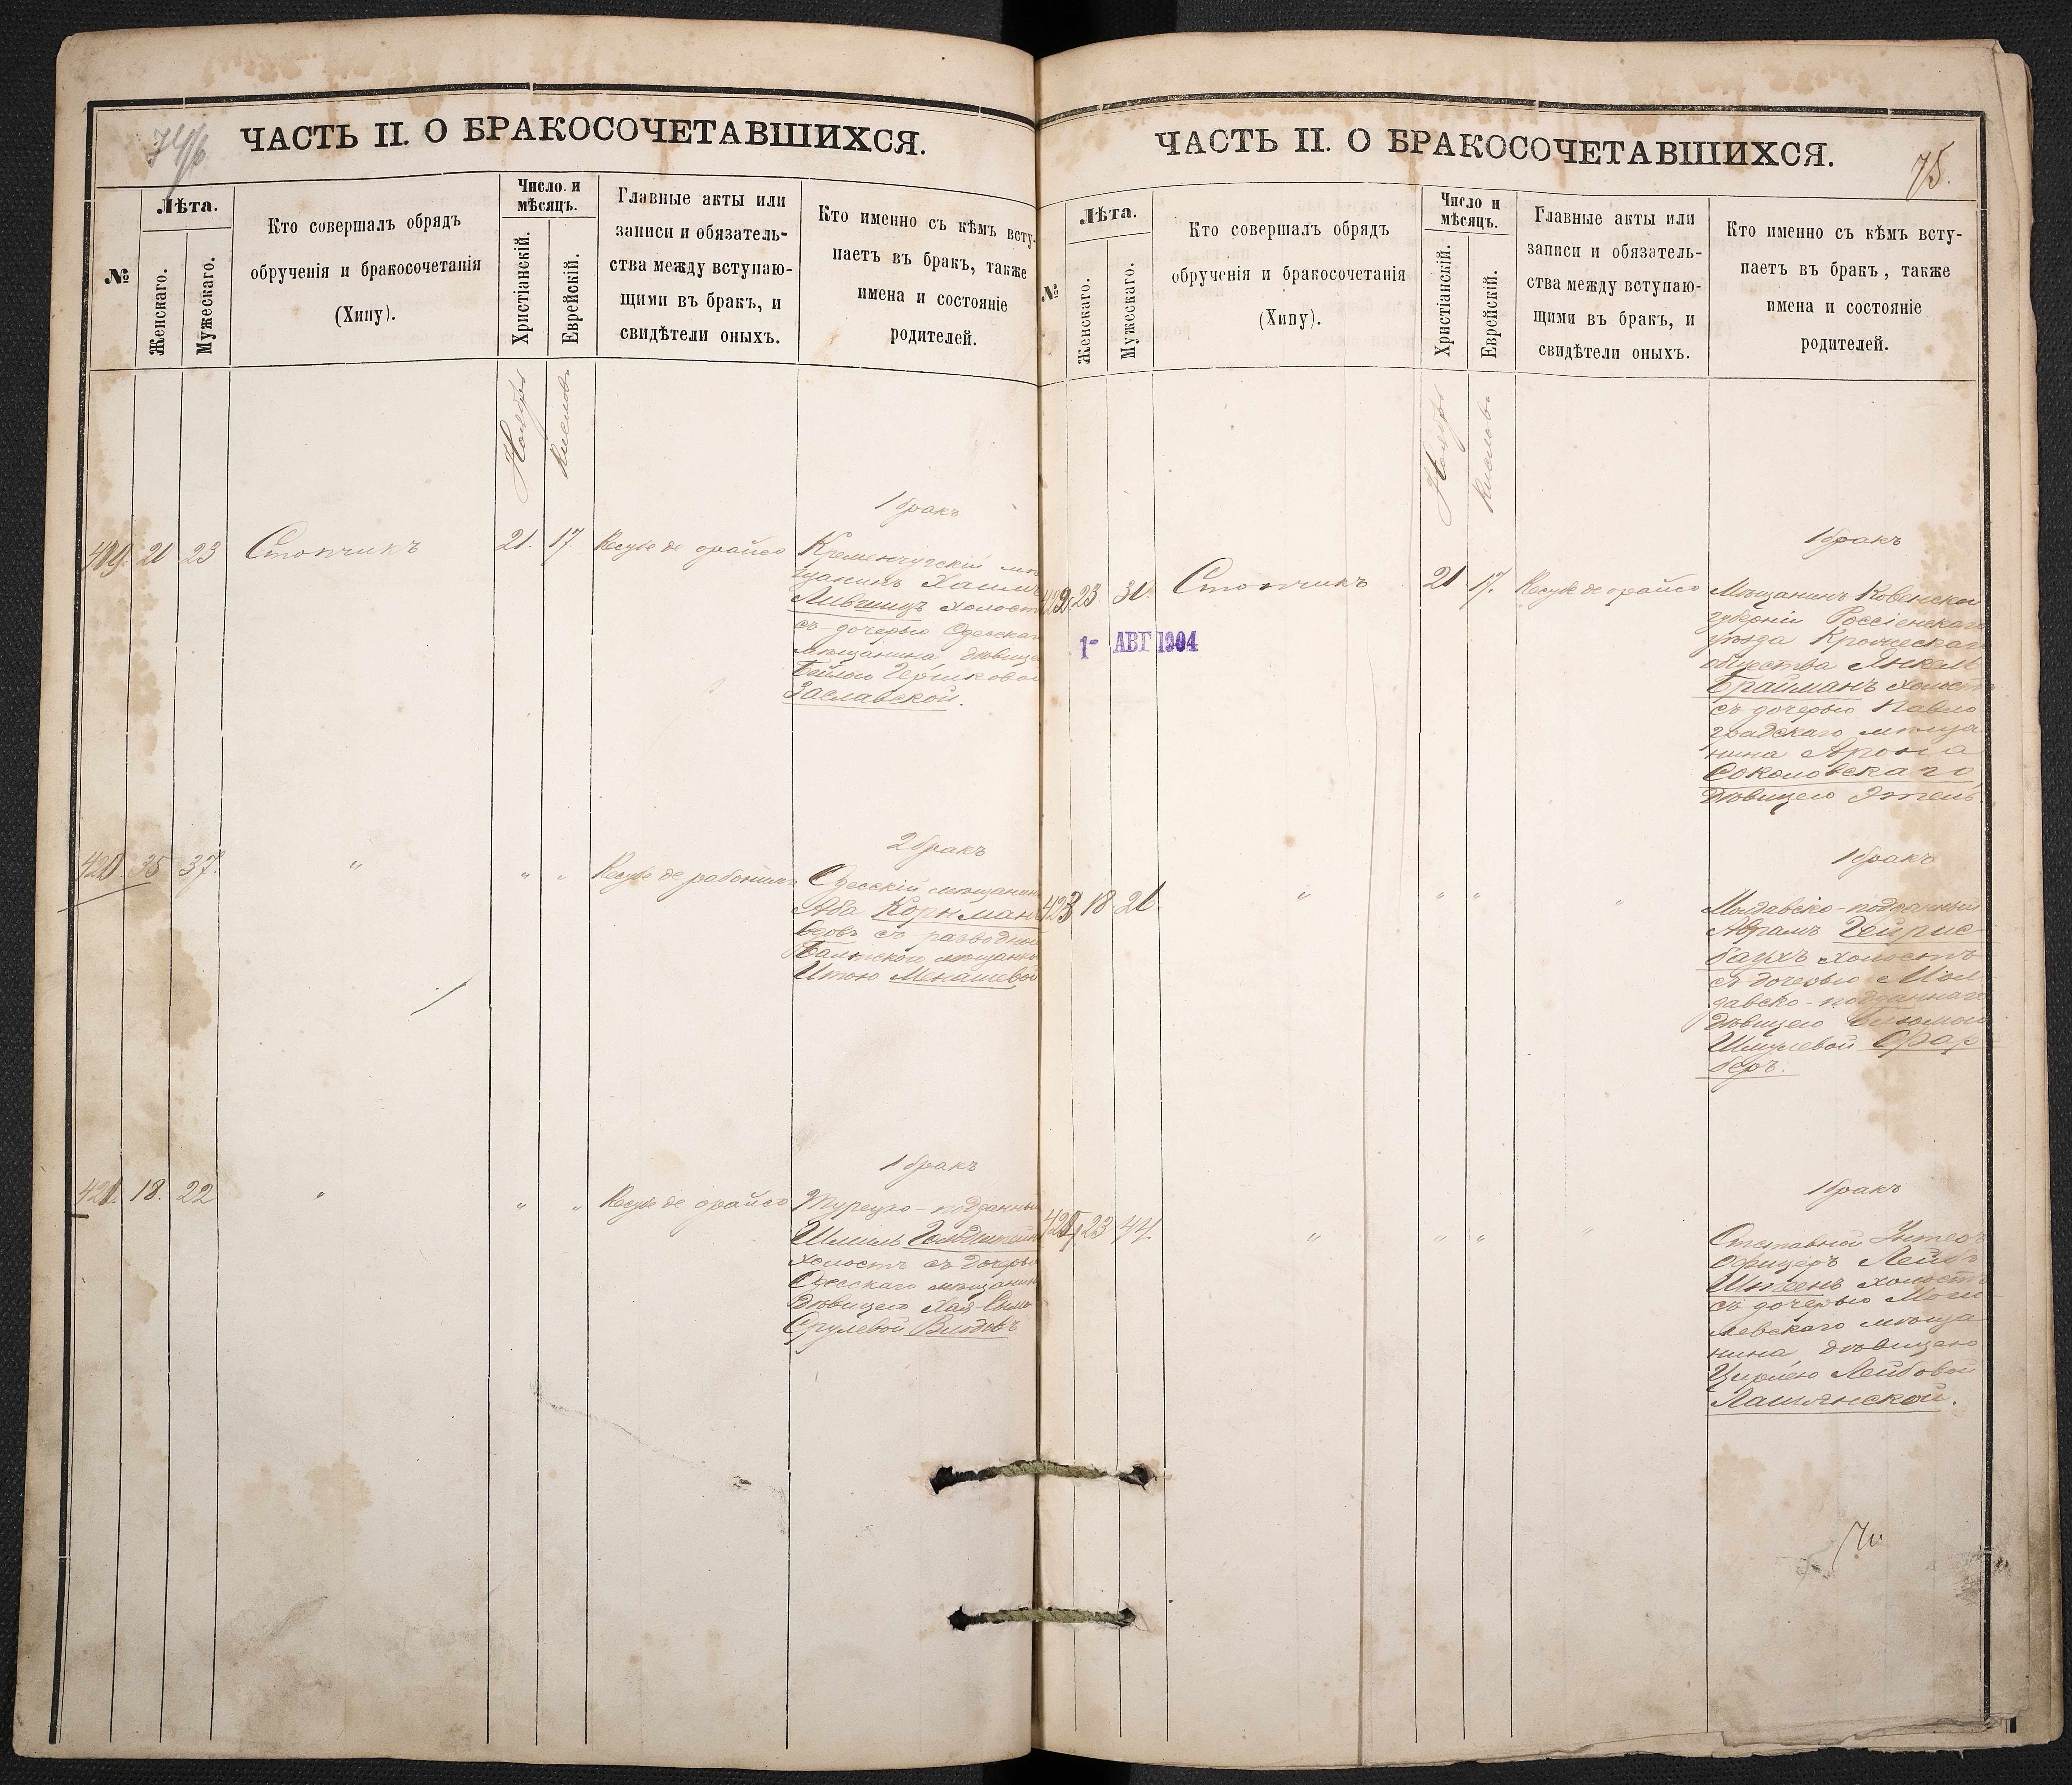 74/б
ЧАСТЬ II. О БРАКОСОЧЕТАВШИХСЯ.
№
Лѣта.
Женскаго.
Мужескаго.
Кто совершалъ обрядъ
обрученія и бракосочетанія
(Хипу).
Число и
мѣсяцъ.
Христіанскій.
Еврейскій.
Главные акты или
записи и обязатель-
ства между вступаю-
щими въ бракъ, и
свидѣтели оныхъ.
Кто именно съ кѣмъ всту-
паетъ въ брак, также
имена и состояніе
родителей.
Ноябрь
Кислевъ
1 бракъ
419. 21 23 Стопчикъ 21. 17 Кесубе де орайсо Кременчугскій мѣ
щанинъ Хаимъ
Лившицъ холост
съ дочерью Одесскаго
мѣщанина, дѣвицею
Бейлою Гершковой
Заславской.
2 бракъ
420. 35 37. " " " Кесубе де рабонимъ Одесскій мѣщанинъ
Аба Корнманъ
вдовъ съ разводной
Балтской мѣщанкой
Итою Менашевой
1 бракъ
421. 18. 22 " " " Кесубе де орайсо Турецко-подданный
Шмиль Гольдштейнъ
холостъ съ дочерью
Одесскаго мѣщанина
дѣвицею Хая-
Срулевой
ЧАСТЬ II. О БРАКОСОЧЕТАВШИХСЯ.
75.
№
Лѣта.
Женскаго.
Мужескаго.
Кто совершалъ обрядъ
обрученія и бракосочетанія
(Хипу).
Число и
мѣсяцъ.
Христіанскій.
Еврейскій.
Главные акты или
записи и обязатель-
ства между вступаю-
щими въ бракъ, и
свидѣтели оныхъ.
Кто именно съ кѣмъ всту-
паетъ въ бракъ, также
имена и состояніе
родителей.
Ноябрь
Кислевъ
1 бракъ
422. 23. 30. Стопчикъ 21 17. Кесубе де орайсо Мѣщанинъ Ковенской
губерніи Россіенскаго
уѣзда Крожескаго
общества Янкель
Брайманъ холостъ
съ дочерью Павло
градскаго мѣща
нина Арона
Соколовскаго
дѣвицею Этель
1- АВГ 1904
1 бракъ
423 18. 21. " " " " Молдавско-подданный
Абрамъ Гейрис
баухъ холостъ
съ дочерью Мол
давско-подданнаго
дѣвицею
Шмулевой Фар
беръ.
1 бракъ
424. 23 44. " " " " Отставной Унтеръ
Офицеръ Лейба
холостъ
съ дочерью Моги
левскаго мѣща
нина, дѣвицею
Цирлею Лейбовой